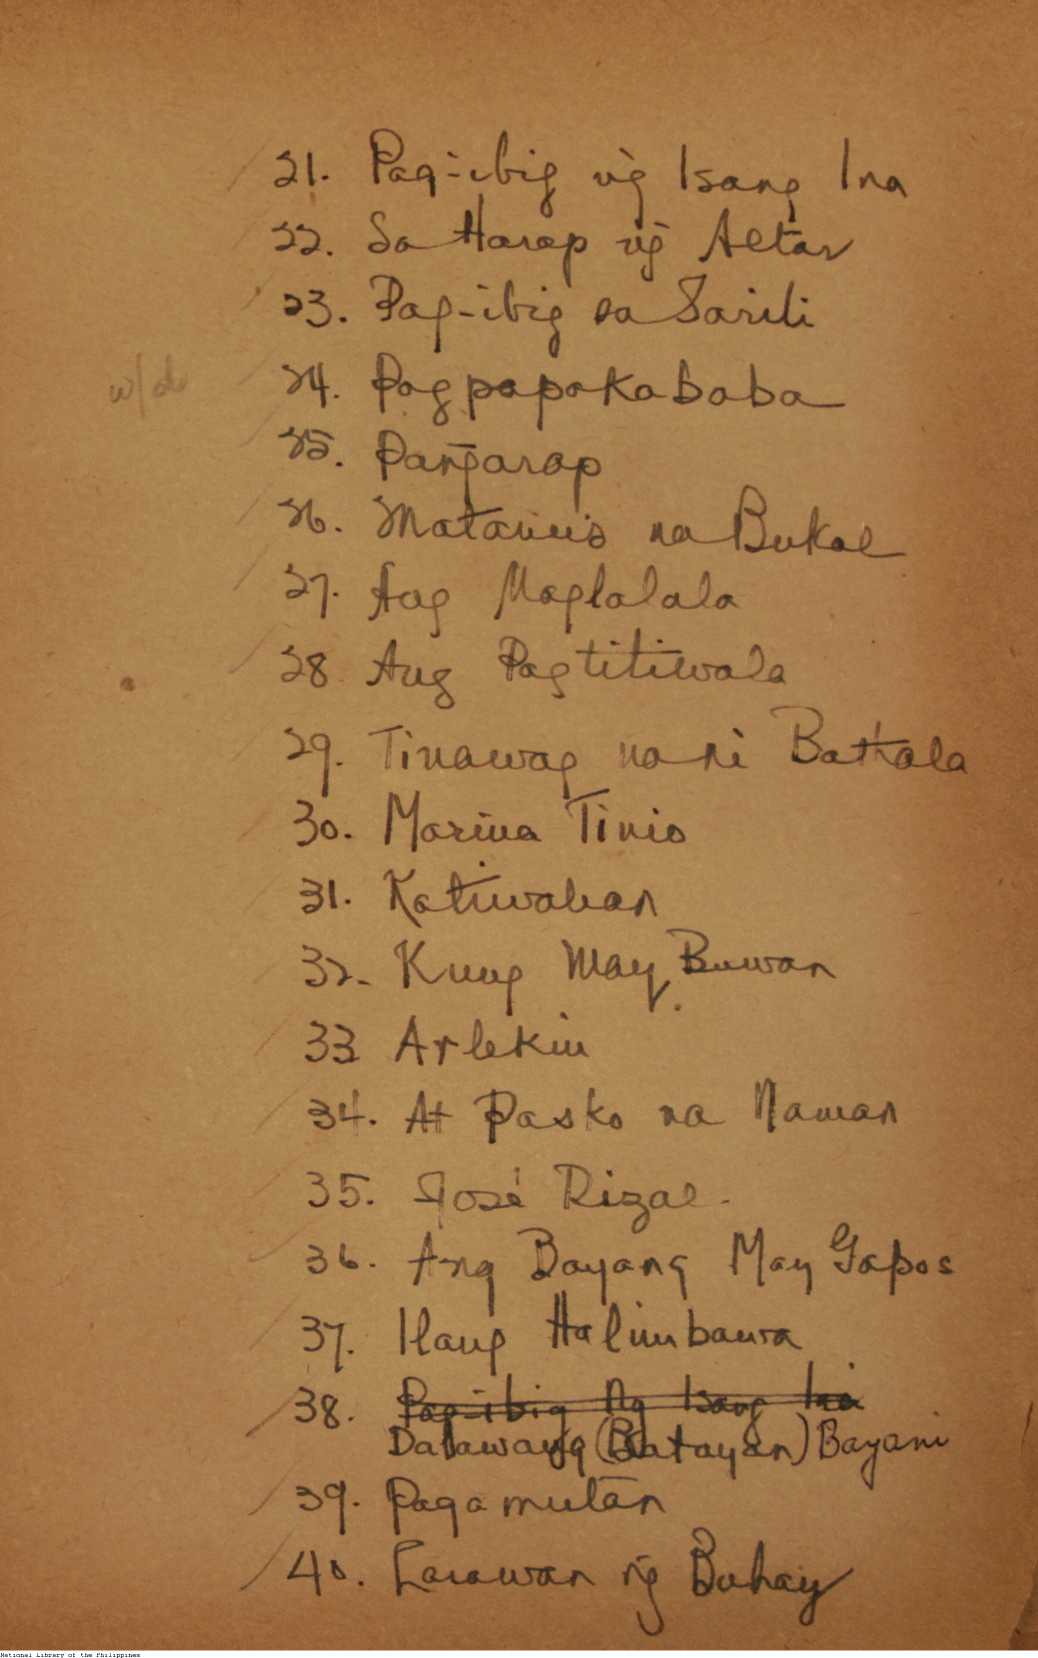 21. Pag-ibig ng̃ Isang Ina
22. Sa Harap ng̃ Altar
23. Pag-ibig sa Sarili
24. Pagpapakababa
25. Pang̃arap
26. Matamis na Bukal
27. Ang Maglalala
28 Ang Pagtitiwala
29. Tinawag na ni Bathala
30. Marina Tinio
31. Katiwalian
32. Kung May Buwan
33 Arlekin
34. At Pasko na Naman
35. José Rizal.
36. Ang Bayang May Gapos
37. Ilang Halimbawa
38. Pag-ibig Ng Isang Ina
Dalawang (Batayan) Bayani
39. Pagamutan
40. Larawan ng̃ Buhay
National Library of the Philippines